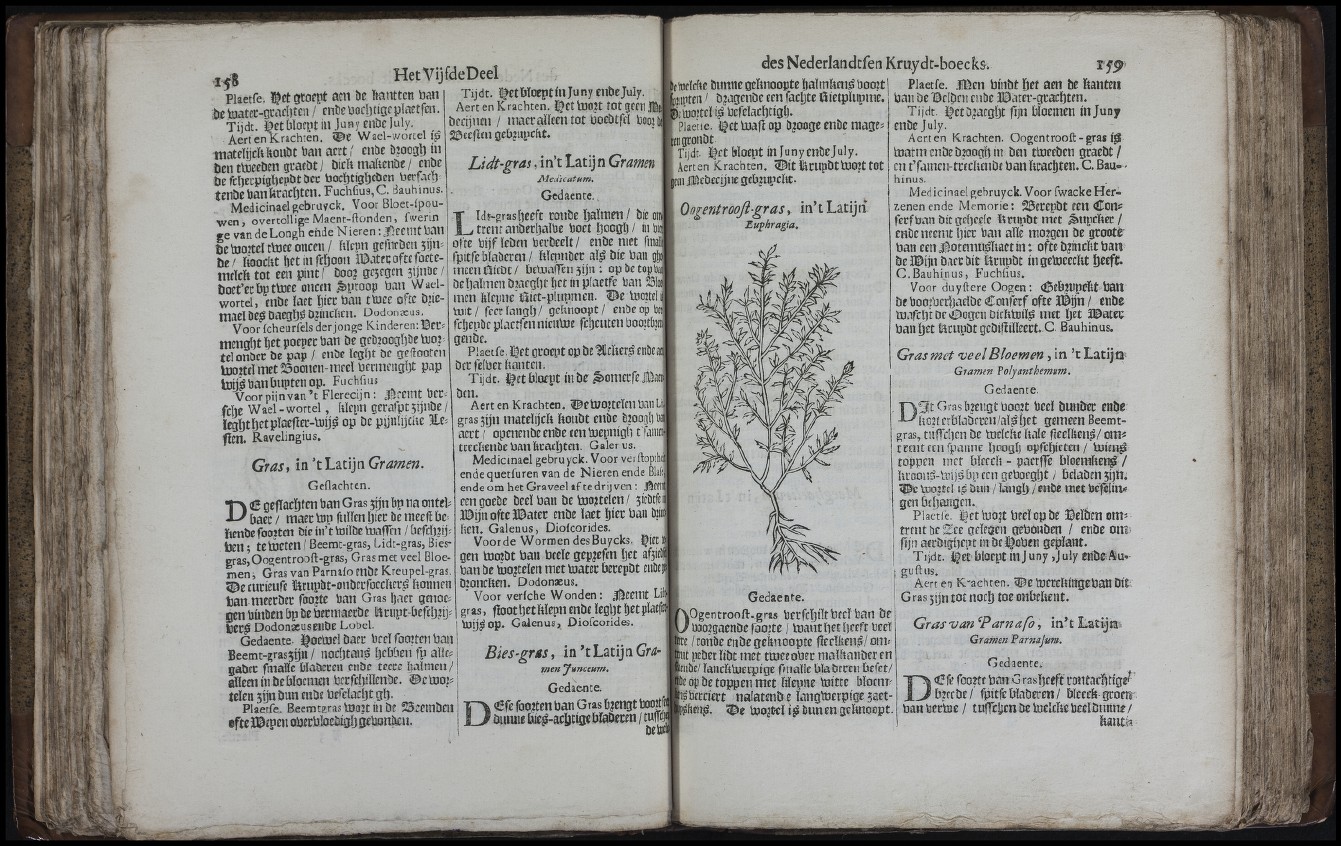 158
Het Vijfde Deel
Plaetse. Het groept aen de kantten van
de water-grachten / ende vochtige plaetsen.
Tijdt. Het bloept in Juny ende July.
Aert en Krachten. De Wael-wortel is
matelijck koudt van aert / ende droogh in
den tweeden graedt / dick makende / ende
de scherpigheydt der vochtigheden versach-
tende van krachten. Fuchsius, C. Bauhinus.
Medicinael gebruyck. Voor Bloet-spou-
wen, overtollige Maent-stonden, swerin
ge van de Longh ende Nieren: Neemt van
de wortel twee oncen / kleyn gesneden zijn-
de / koockt het in schoon Water ofte soete-
melck tot een pint / door gezegen zijnde /
doet'er by twee oncen Syroop van Wael-
wortel, ende laet hier van twee ofte drie-
mael des daeghs drincken. Dodonæus.
Voor scheursels der jonge Kinderen: Ver-
menght het poeyer van de gedrooghde wor-
tel onder de pap / ende leght de gestooten
wortel met Boonen-meel vermenght pap
wijs van buyten op. Fuchsius
Voor pijn van 't Flerecijn: Neemt ver-
sche Wael-wortel, kleyn geraspt zijnde /
leght het plaester-wijs op de pijnlijcke Le-
sten. Ravelingius.
Gras, in 't Latijn Gramen.
Geslachten.
DE geslachten van Gras zijn by na ontel-
baer / maer wy sullen hier de meest be-
kende soorten die in 't wilde wassen / beschrij-
ven; te weten / Beemt-gras, Lidt-gras, Bies-
gras, Oogentroost-gras, Gras met veel Bloe-
men, Gras van Parnaso ende Kreupel-gras.
De curieuse Kruydt-ondersoeckers konnen
van meerder soorte van Gras haer genoe-
gen vinden by de vermaerde Kruyt-beschrij-
vers Dodonæus ende Lobel.
Gedaente. Hoewel daer veel soorten van
Beemt-gras zijn / nochtans hebben sy alle-
gader smalle bladeren ende teere halmen /
alleen in de bloemen verschillende. De wor-
telen zijn dun ende veselachtigh.
Plaetse. Beemt-gras wort in de Beemden
ofte Weyen overvloedigh gevonden.
Tijdt. Het bloept in Juny ende July.
Aert en Krachten. Het wort tot geen Me-
decijnen / maer alleen tot voedtsel voor de
Beesten gebruyckt.
Lidt-gras, in't Latijn Gramen
Medicatum.
Gedaente.
LIdt-gras heeft ronde halmen / die om
trent anderhalve voet hoogh / in vier
ofte vijf leden verdeelt / ende met smalle
spitse bladeren / kleynder als die van ghe
meen Riedt / bewassen zijn: op de top van
de halmen draeght het in plaetse van Bloe
men kleyne Riet-pluymen. De wortel is
wit / seer langh / geknoopt / ende op ver
scheyde plaetsen nieuwe scheuten voortbren
gende.
Plaetse. Het groept op de Ackers ende aen
der selver kanten.
Tijdt. Het bloept in de Somerse Maen
den.
Aert en Krachten. De wortelen van Lidt
gras zijn matelijck koudt ende droogh van
aert / openende ende een weynigh t'samen
treckende van krachten. Galenus.
Medicinael gebruyck. Voor verstoptheit
ende quetsuren van de Nieren ende Blaes,
ende om het Graveel af te drijven: Neemt
een goede deel van de wortelen / ziedtse in
Wijn ofte Water ende laet hier van drinc
ken. Galenus, Dioscorides.
Voor de Wormen des Buycks. Hier te
gen wordt van veele gepresen het afziedt
van de wortelen met water bereydt ende ge
droncken. Dodonæus.
Voor versche Wonden: Neemt Lidt
gras, stoot het kleyn ende leght het plaester
wijs op. Galenus, Dioscorides.
Bies-gras, in 't Latijn Gra-
men Junceum.
Gedaente.
DEse soorten van Gras brengt voort seer
dunne bies-achtige bladeren / tusschen
de wel-
des Nederlandtsen Kruydt-boecks.
159
de welcke dunne geknoopte halmkens voort
spruyten / dragende een sachte Rietpluyme.
De wortel is veselachtigh.
Plaetse. Het wast op drooge ende mage-
ren grondt
Tijdt. Het bloept in Juny ende July.
Aert en Krachten. Dit Kruydt wort tot
geen Medecijne gebruyckt.
Oogentroost-gras, in't Latijn
Euphragia.
Gedaente.
OOgentroost-gras verschilt veel van de
voorgaende soorte / want het heeft veel
teere / ronde ende geknoopte steelkens / om-
trent yeder lidt met twee over malkander en
staende / lanckwerpige smalle bladeren beset /
ende op de toppen met kleyne witte bloem-
kens verciert nalatende langwerpige zaet-
hupskens. De wortel is dun en geknoopt.
Plaetse. Men vindt het aen de kanten
van de Velden ende Water-grachten.
Tijdt. Het draeght sijn bloemen in Juny
ende July.
Aert en Krachten. Oogentroost-gras is
warm ende droogh in den tweeden graedt /
en t'samen-treckende van krachten. C. Bau-
hinus.
Medicinael gebruyck. Voor swacke Her-
zenen ende Memorie: Bereydt een Con-
serf van dit geheele Kruydt met Suycker /
ende neemt hier van alle morgen de groote
van een Notemuskaet in: ofte drinckt van
de Wijn daer dit Kruydt in geweeckt heeft.
C. Bauhinus, Fuchsius.
Voor duystere Oogen: Gebruyckt van
de voorverhaelde Conserf ofte Wijn / ende
wascht de Oogen dickwils met het Water
van het Kruydt gedistilleert. C. Bauhinus.
Gras met veel Bloemen, in 't Latijn
Gramen Polyanthemum.
Gedaente.
DIt Gras brengt voort veel dunder ende
korter bladeren / als het gemeen Beemt-
gras, tusschen de welcke kale steelkens / om-
trent een spanne hoogh opschieten / wiens
toppen met bleeck-paersse bloemkens /
kroons-wijs by een gevoeght / beladen zijn.
De wortel is dun / langh / ende met veselin-
gen behangen.
Plaetse. Het wort veel op de Velden om-
trent de Zee gelegen gevonden / ende om
sijn aerdigheyt in de Hoven geplant.
Tijdt. Het bloept in Juny, July ende Au-
gustus.
Aert en Krachten. De werckinge van dit
Gras zijn tot noch toe onbekent.
Gras van Parnaso, in't Latijn
Gramen Parnasum.
Gedaente.
DEse soorte van Gras heeft rontachtige
breede / spitse bladeren / bleeck-groen
van verwe / tusschen de welcke veel dunne /
kantig